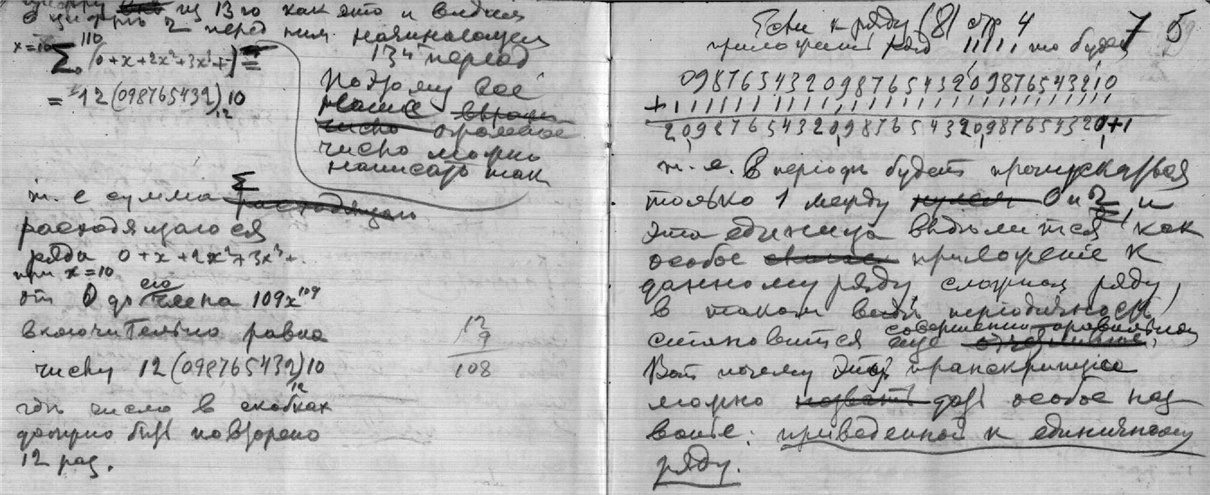 из 13го как это и видно
2 перед ним. начинающей
13й период
x=10 110
∑₀ (0+x+2x²+3x³+-) =
= 12(098765432)₁₂10
Поэтому все
наше
число огромное
число можно
написать так
т. е сумма
расходящагося
ряда 0+x+2x²+3x³+.
при x=10
от 0 до его члена 109x¹⁰⁹
включительно равна
числу 12(098765432)₁₂10
где число в скобках
должно быть повторено
12 раз.
12
9
108
7 5
Если к ряду (8) стр 4
приложить ряд 11111 то будет
09876543209876543209876543210
+11111111111111111111111111111
2098765432098765432098765432 0+1
т. е. в периоде будет пропускаться
только 1 между нулем 0 и 2, и
эта единица выделится как
особое приложение к
данному ряду сложных ряду,
в таком виде периодичность
становится совершенно правильной
Вот почему этой транскрипции
можно назвать дать особое наз
вание: приведенной к единичному
ряду.